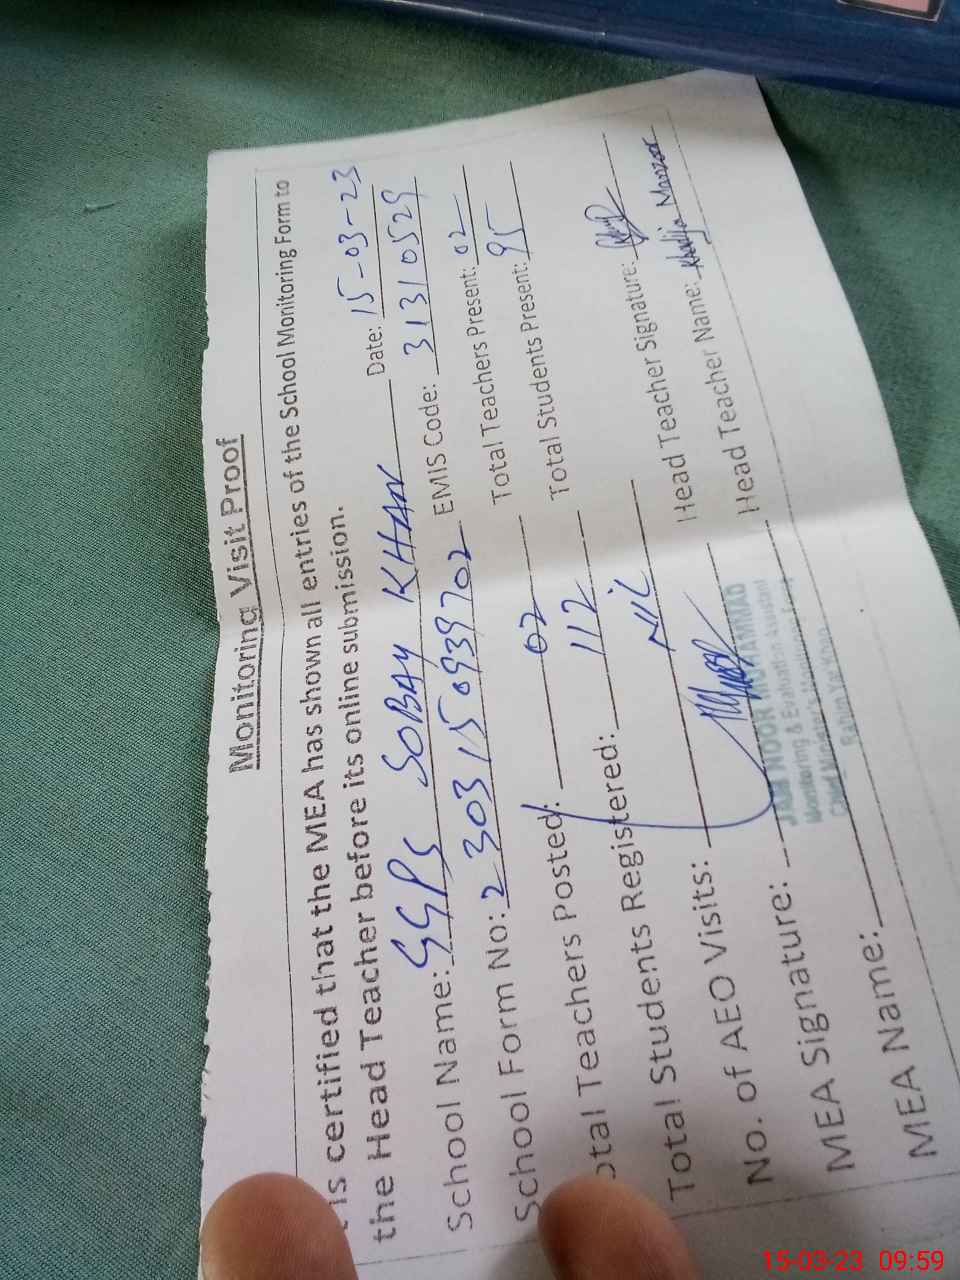 Monitoring Visit Proof
is certified that the MEA has shown all entries of the School Monitoring Form to
the Head Teacher before its online submission.
School Name: GGPS SOBAY KHAN Date: 15-03-23
School Form No: 2303150939702 EMIS Code: 31310529
otal Teachers Posted: 02 Total Teachers Present: 02
Total Students Registered: 112 Total Students Present: 95
No. of AEO Visits: NIL Head Teacher Signature:
MEA Signature: Head Teacher Name: Khalija Manzoor
MEA Name:
JAM NOOR MUHAMMAD
Monitoring & Evaluation Assistant
Chief Minister's Monitoring Force
Rahim Yar Khan
15-03-23 09:59